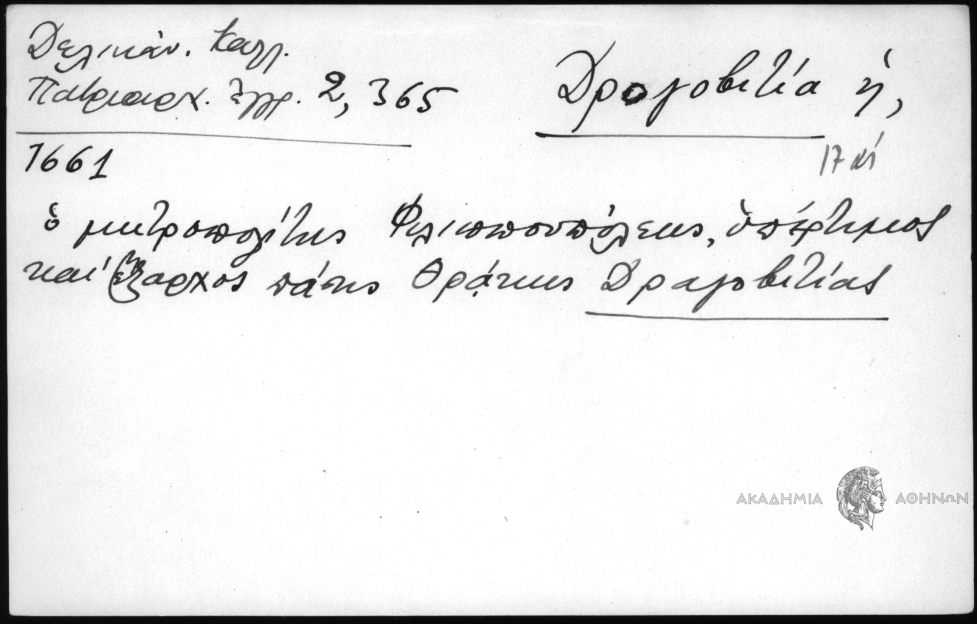 Δελικάν. Καλλ.
Πατριαρχ. Ἔγγρ. 2, 365
Δραγοβιτία ἡ,
17 αἰ
1661
ὁ μητροπολίτης Φιλιππουπόλεως, ὑπέρτιμος
καὶ ἔξαρχος πάσης Θράκης Δραγοβιτίας
ΑΚΑΔΗΜΙΑ ΑΘΗΝΩΝ